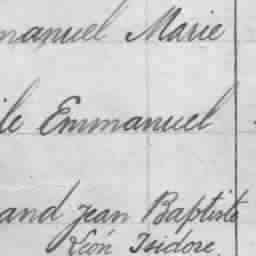 manuel Marie
ile Emmanuel
and Jean Baptiste
Léon Isidore.